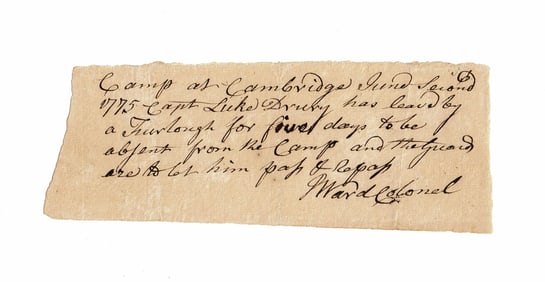 Camp at Cambridge June Second
1775 Capt Luke Drury has leave by
a Furlough for five days to be
absent from the Camp and the guard
are to let him pass & Repass
JWard Colonel